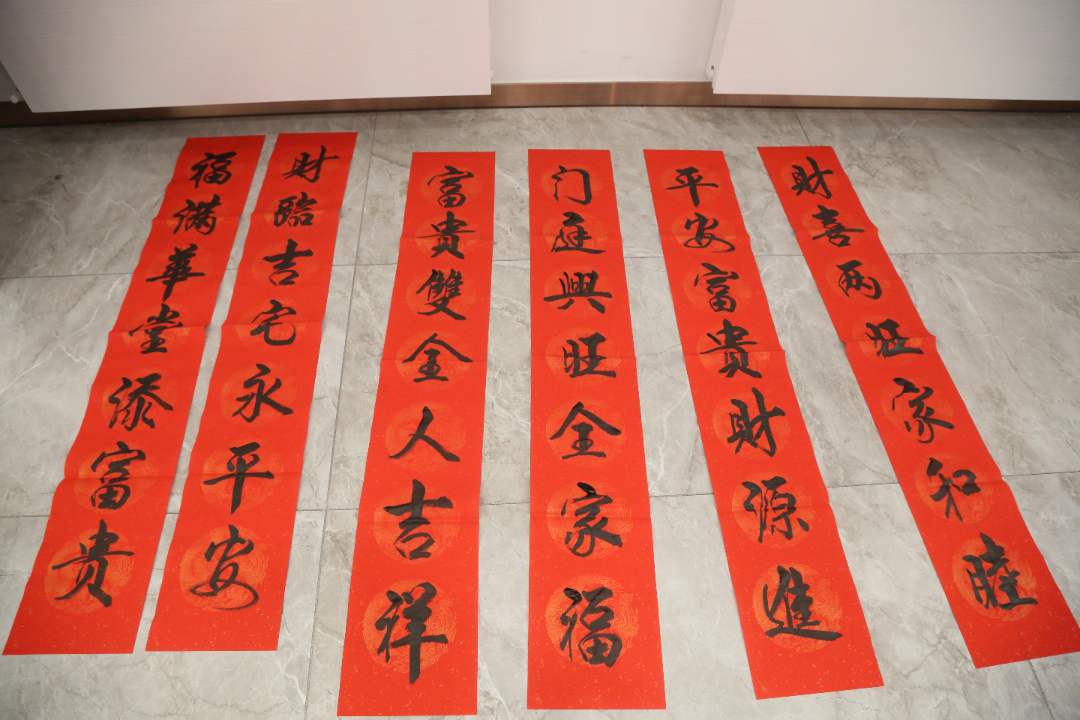 福满華堂添富贵
财臨吉宅永平安
富贵雙全人吉祥
门庭興旺全家福
平安富贵财源進
财喜两旺家和睦